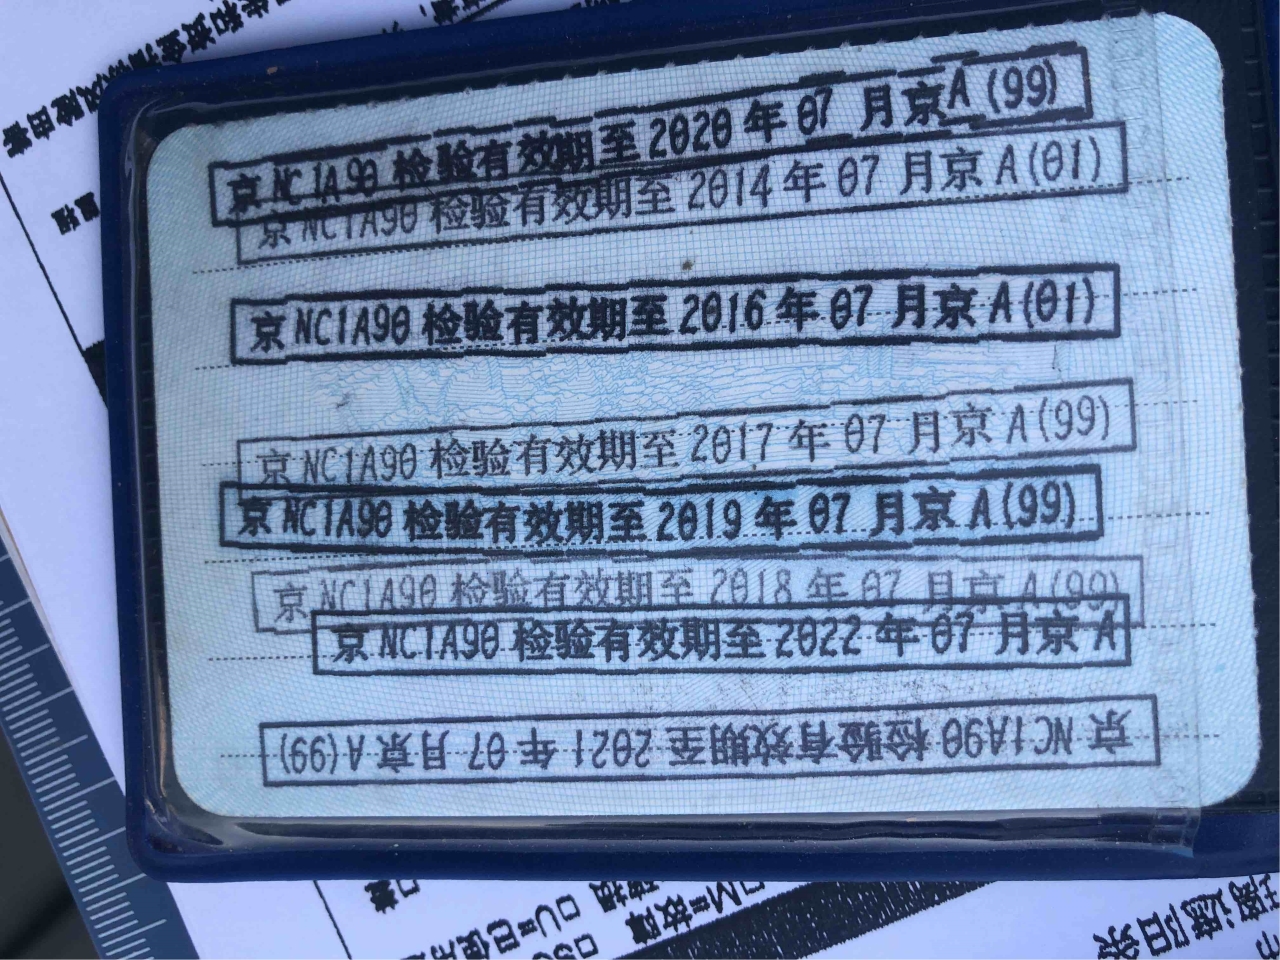 京NC1A90 检验有效期至2020年07月京A(99)
京NC1A90 检验有效期至2014年07月京A(01)
京NC1A90 检验有效期至2016年07月京A(01)
京NC1A90 检验有效期至2017年07月京A(99)
京NC1A90 检验有效期至2019年07月京A(99)
京NC1A90 检验有效期至2018年07月京A(99)
京NC1A90 检验有效期至2022年07月京A
京NC1A90 检验有效期至2021年07月京A(99)